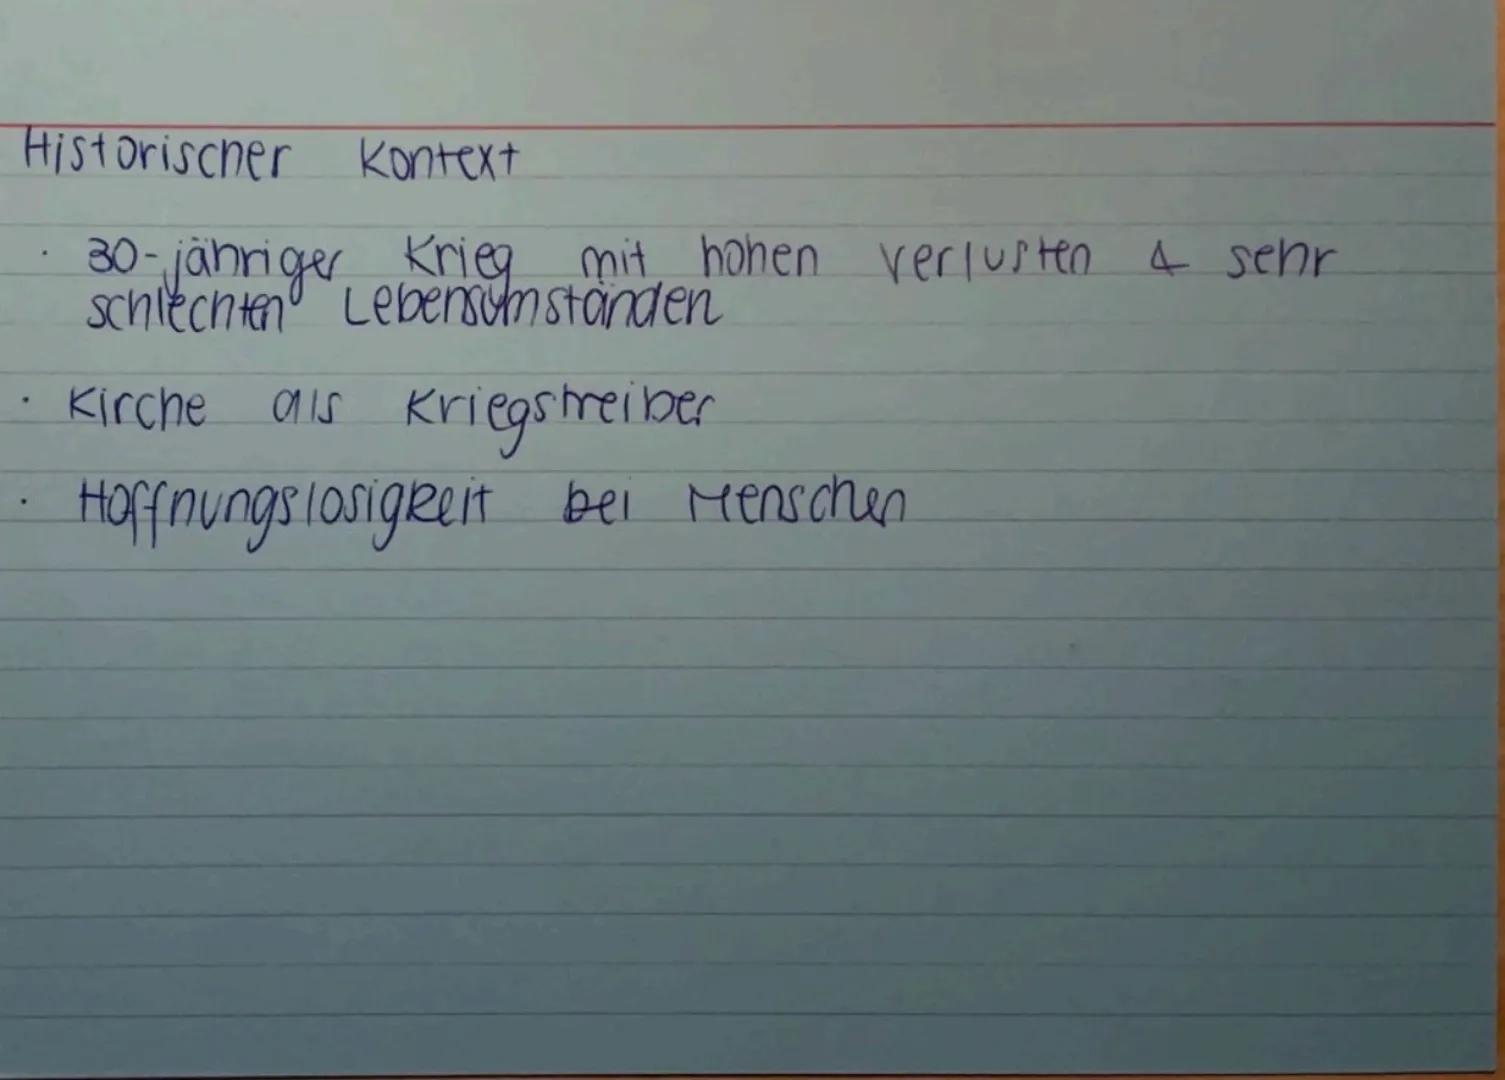 Historischer Kontext
· 30-jähriger Krieg mit hohen Verlusten & sehr
schlechten Lebensumständen
· Kirche als Kriegstreiber
· Hoffnungslosigkeit bei Menschen